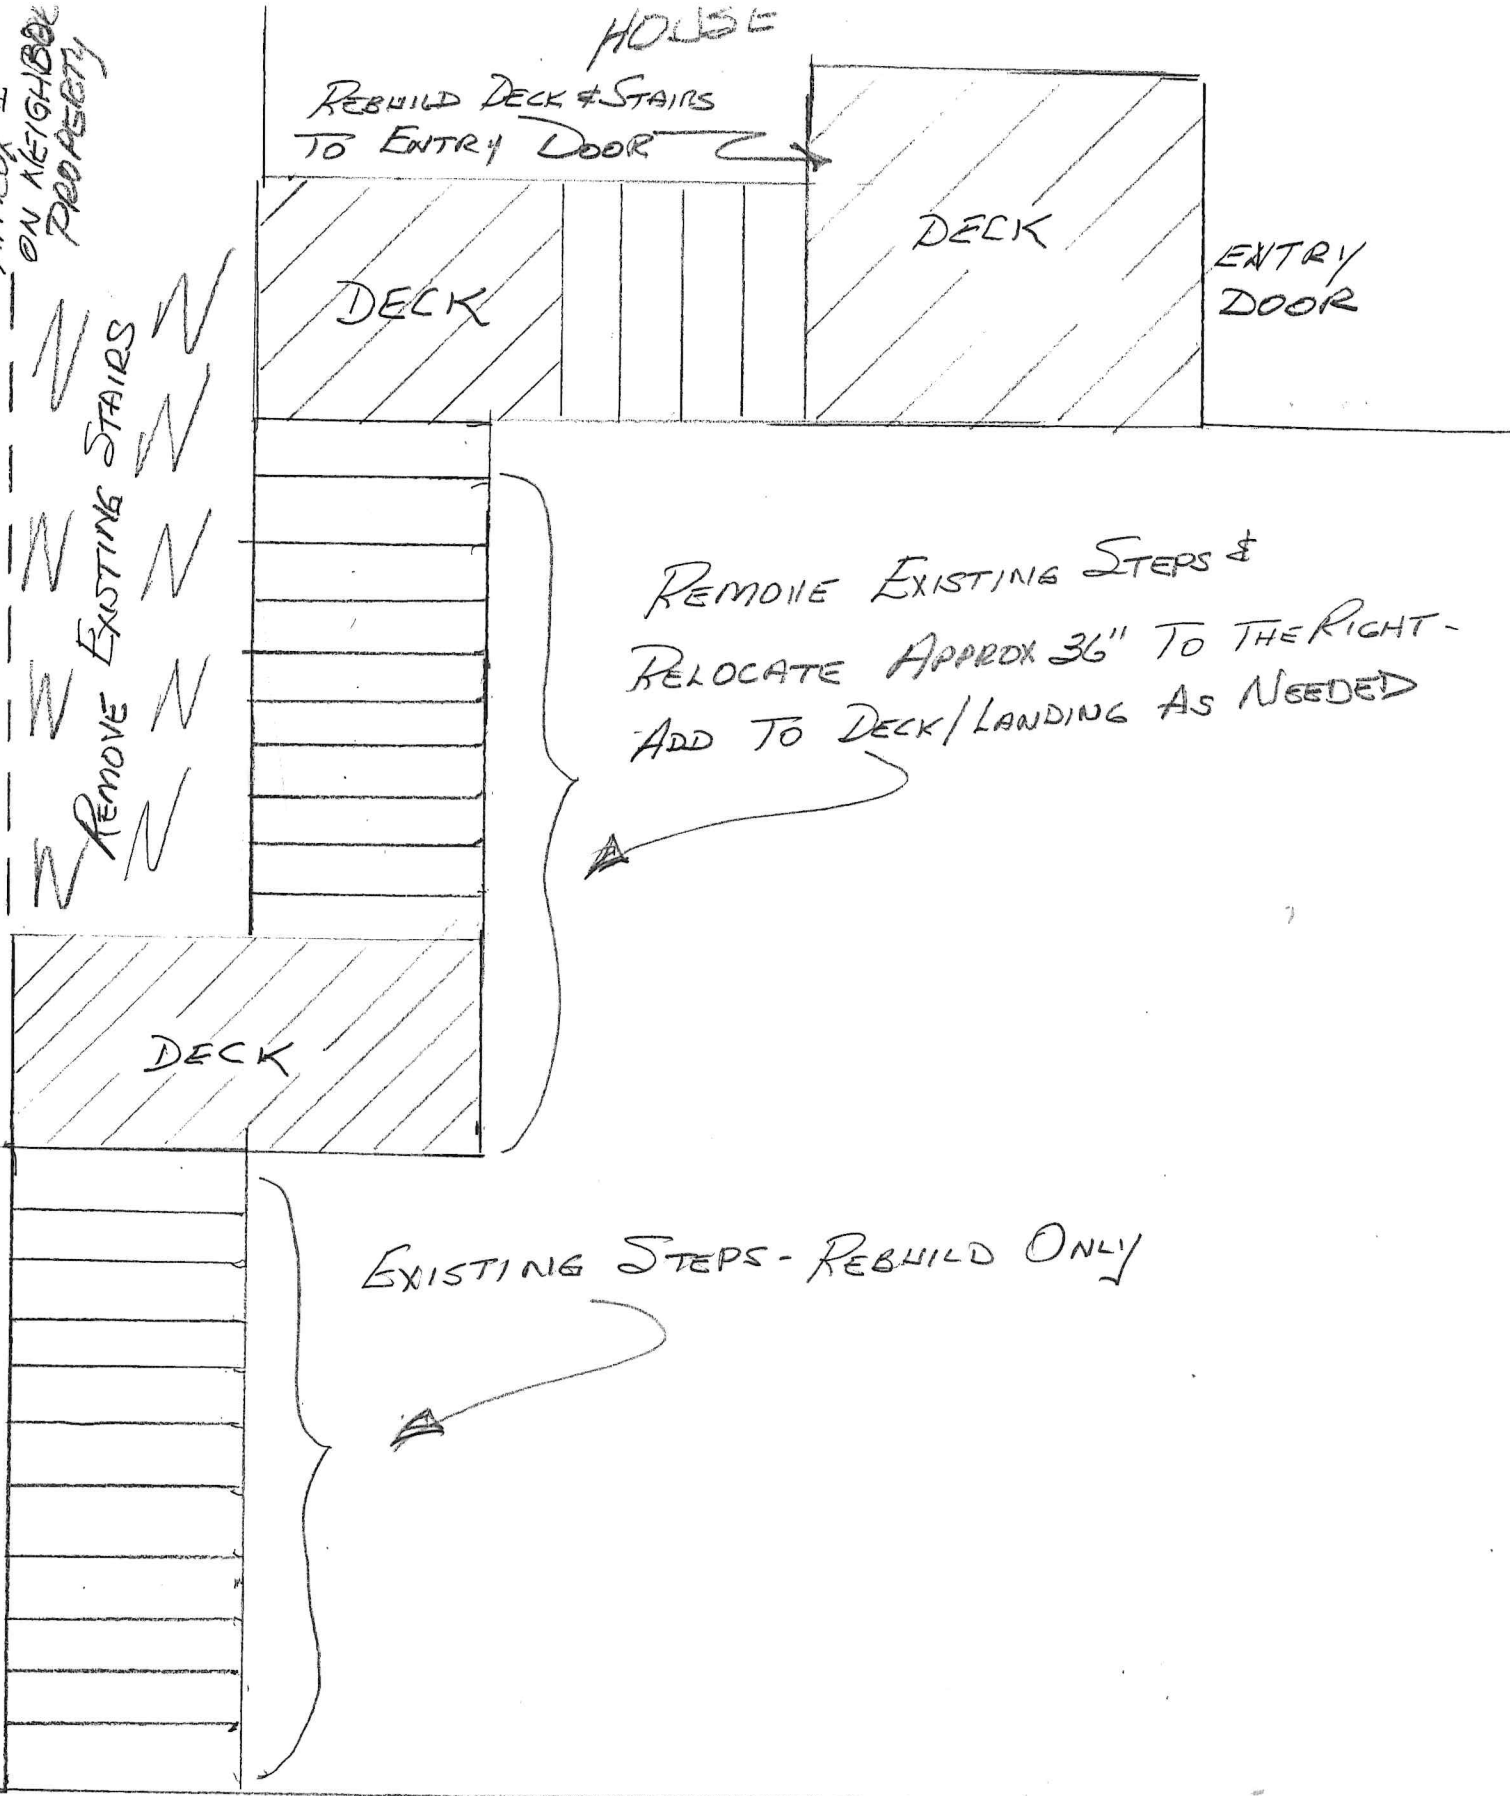 HOUSE
ON NEIGHBOR
PROPERTY
REBUILD DECK & STAIRS
TO ENTRY DOOR
DECK
DECK
ENTRY
DOOR
REMOVE EXISTING STAIRS
REMOVE EXISTING STEPS &
RELOCATE APPROX 36" TO THE RIGHT -
ADD TO DECK/LANDING AS NEEDED
DECK
EXISTING STEPS - REBUILD ONLY